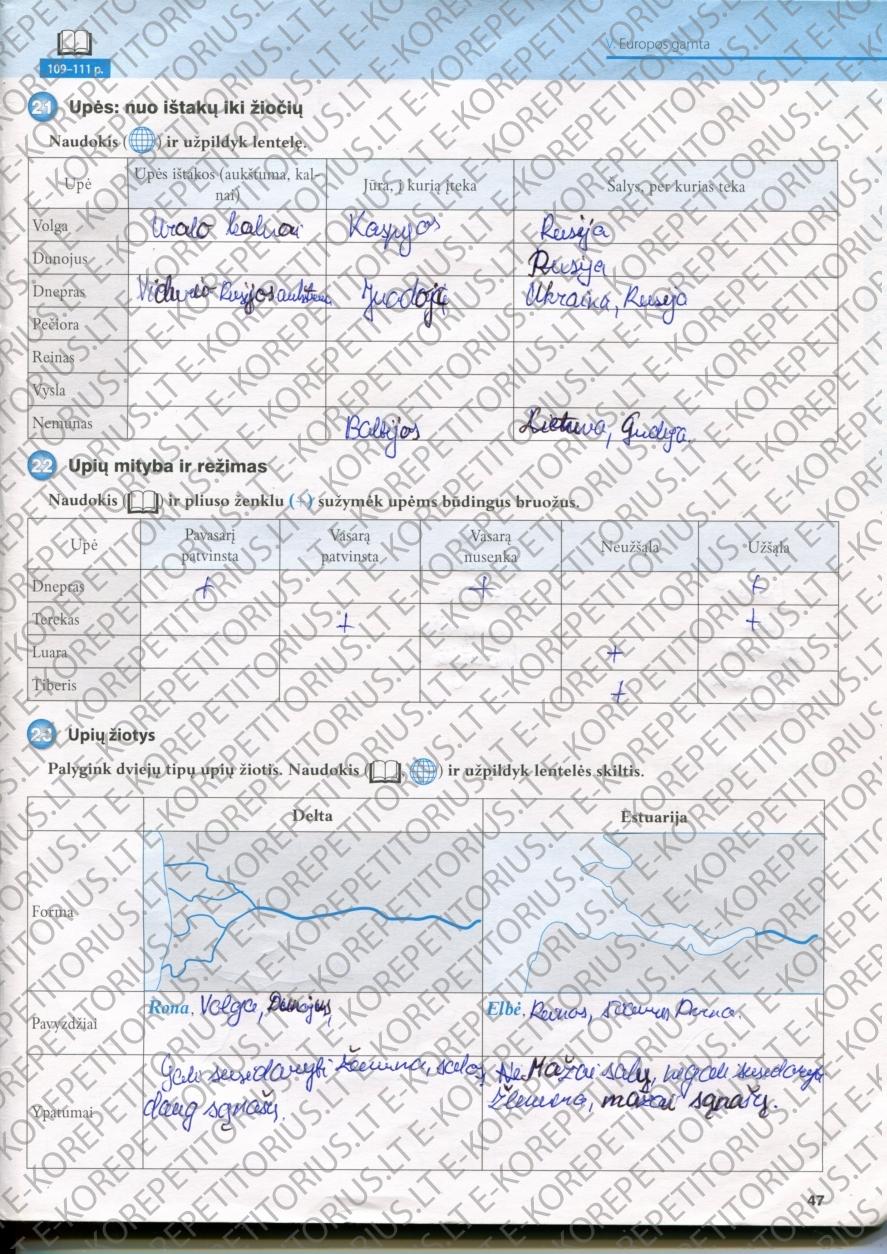 V. Europos gamta
109–111 p.
21 Upės: nuo ištakų iki žiočių
Naudokis ( ) ir užpildyk lentelę.
Upė Upės ištakos (aukštuma, kal-
nai) Jūra, į kurią įteka Šalys, per kurias teka
Volga Uralo kalnai Kaspijos Rusija
Dunojus Rusija
Dnepras Vidurio Rusijos aukštuma Juodoji Ukraina, Rusija
Pečiora
Reinas
Vysla
Nemunas Baltijos Lietuva, Gudija
22 Upių mityba ir režimas
Naudokis ( ) ir pliuso ženklu (+) sužymėk upėms būdingus bruožus.
Upė Pavasarį
patvinsta Vasarą
patvinsta Vasarą
nusenka Neužšąla Užšąla
Dnepras + + +
Terekas + +
Luara +
Tiberis +
23 Upių žiotys
Palygink dviejų tipų upių žiotis. Naudokis ( , ) ir užpildyk lentelės skiltis.
Delta Estuarija
Forma
Pavyzdžiai Rona, Volga, Dunojus, Elbė,
Ypatumai
Gali susidaryti žemuma, salos,
daug sąnašų.
Ne Mažai salų, negali susidaryti
žemuma, mažai sąnašų.
47
E-KOREPETITORIUS.LT